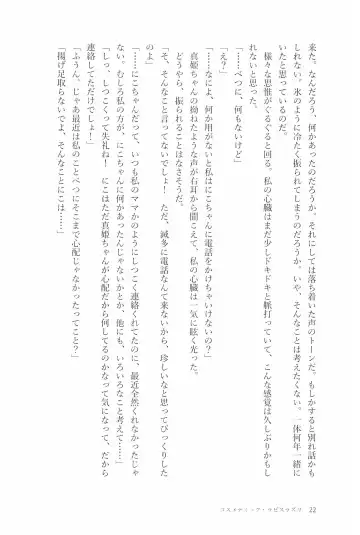 来た。なんだろう、何かあったのだろうか。それにしては落ち着いた声のトーンだ。もしかすると別れ話かも
しれない。氷のように冷たく振られてしまうのだろうか。いや、そんなことは考えたくない。一体何年一緒に
いたと思っているのだ。
様々な思惟がぐるぐると回る。私の心臓はまだ少しドキドキと脈打っていて、こんな感覚は久しぶりかもし
れないと思った。
「……べつに、何もないけど」
「え？」
「……なによ、何か用がないと私はにこちゃんに電話をかけちゃいけないの？」
真姫ちゃんの拗ねたような声が右耳から聞こえて、私の心臓は一気に眩く光った。
どうやら、振られることはなさそうだ。
「そ、そんなこと言ってないでしょ！　ただ、滅多に電話なんて来ないから、珍しいなと思ってびっくりした
のよ」
「……にこちゃんだって、いつも私のママかのようにしつこく連絡くれてたのに、最近全然くれなかったじゃ
ない。むしろ私の方が、にこちゃんに何かあったんじゃないかとか、他にも、いろいろなこと考えて……」
「しっ、しつこくって失礼ね！　にこはただ真姫ちゃんが心配だから何してるのかなって気になって、だから
連絡してただけでしょ！」
「ふうん、じゃあ最近は私のことべつにそこまで心配じゃなかったってこと？」
「揚げ足取らないでよ、そんなことにこは……」
コスメティーク・ラピスラズリ
22